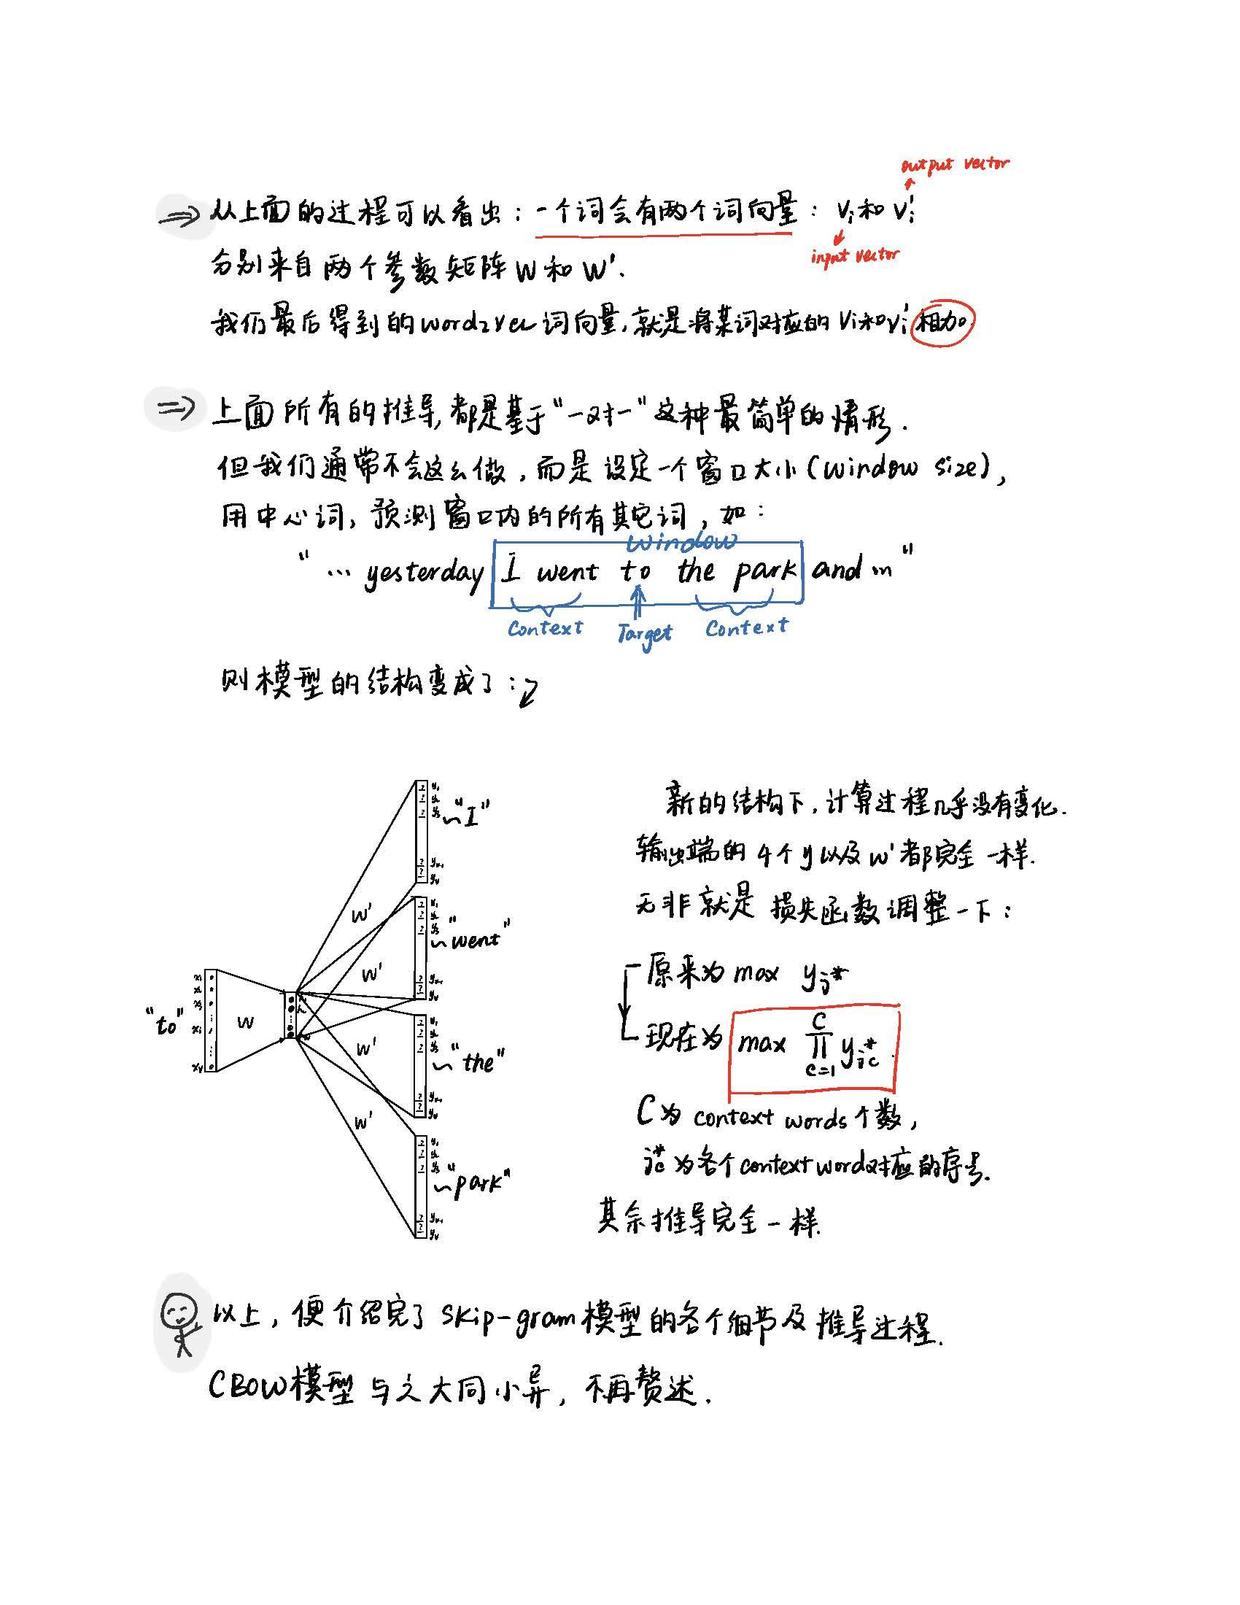 output vector
⇒ 从上面的过程可以看出：一个词会有两个词向量：vᵢ和vᵢ'
input vector
分别来自两个参数矩阵W和W'.
我们最后得到的word2vec词向量,就是将某词对应的vᵢ和vᵢ'相加.
⇒ 上面所有的推导,都是基于"一对一"这种最简单的情形.
但我们通常不会这么做,而是设定一个窗口大小(window size),
用中心词,预测窗口内的所有其它词,如:
window
"… yesterday I went to the park and …"
Context Target Context
则模型的结构变成了:
新的结构下,计算过程几乎没有变化.
"I"
输出端的4个y以及w'都完全一样.
无非就是损失函数调整一下:
W'
"went"
W'
原来为 max yⱼ*
"to" W
现在为 max ∏_{c=1}^{C} y_{j_c^*}
W'
"the"
C为context words个数,
W'
j_c^*为各个context word对应的序号.
"park"
其余推导完全一样.
以上,便介绍完了skip-gram模型的各个细节及推导过程.
CBOW模型与之大同小异,不再赘述.